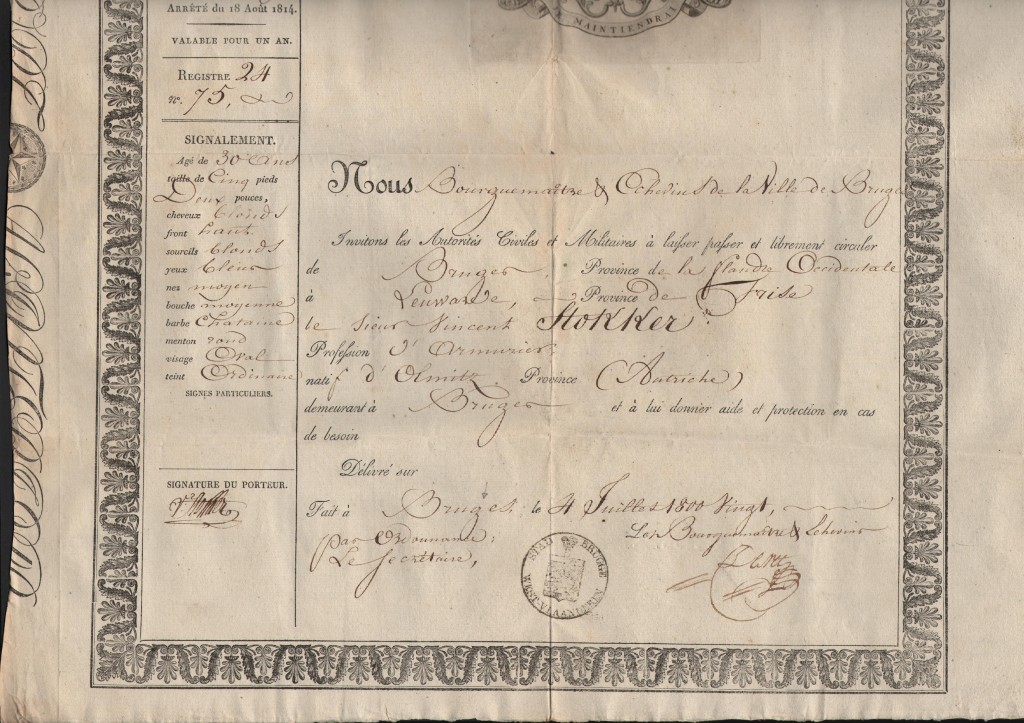 ARRÊTÉ du 18 Août 1814.
VALABLE POUR UN AN.
REGISTRE 24
nº. 75,
SIGNALEMENT.
Agé de 30 Ans
taille de Cinq pieds
Deux pouces,
cheveux blonds
front haut
sourcils blonds
yeux bleus
nez moyen
bouche moyenne
barbe Chataine
menton rond
visage Oval
teint Ordinaire
SIGNES PARTICULIERS.
SIGNATURE DU PORTEUR.
MAINTIENDRAI
Nous Bourguemaitre & Echevins de la Ville de Bruges
Invitons les Autorités Civiles et Militaires à laisser passer et librement circuler
de Bruges, Province de la flandre Occidentale
à Leuwarde, Province de Frise
le Sieur Vincent Stokker
Profession d'Armurier,
natif d'Olmitz Province (Autriche)
demeurant à Bruges et à lui donner aide et protection en cas
de besoin
Délivré sur
Fait à Bruges, le 4 Juillet 1800 Vingt,
par Ordonnance, Les Bourguemaitre & Echevins
Le Secrétaire,
STAD BRUGGE
WEST-VLAANDEREN